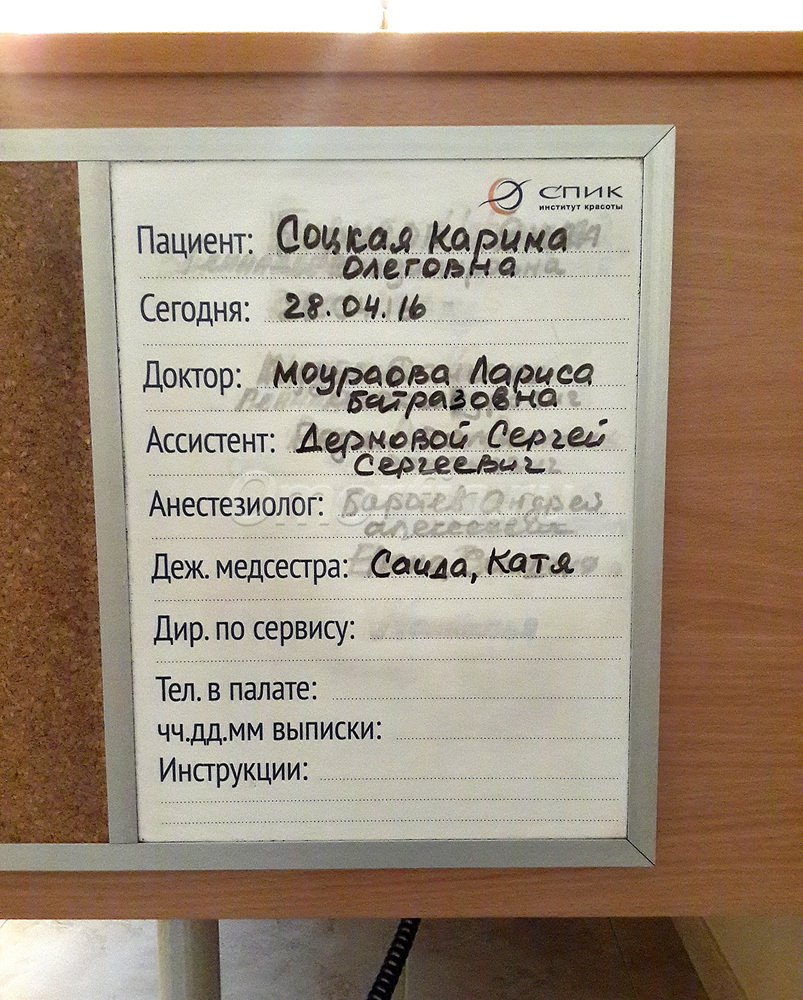 СПИК
институт красоты
Пациент: Соцкая Карина
Олеговна
Сегодня: 28.04.16
Доктор: Моураова Лариса
Батразовна
Ассистент: Дермовой Сергей
Сергеевич
Анестезиолог:
Деж. медсестра: Саида, Катя
Дир. по сервису:
Тел. в палате:
чч.дд.мм выписки:
Инструкции: